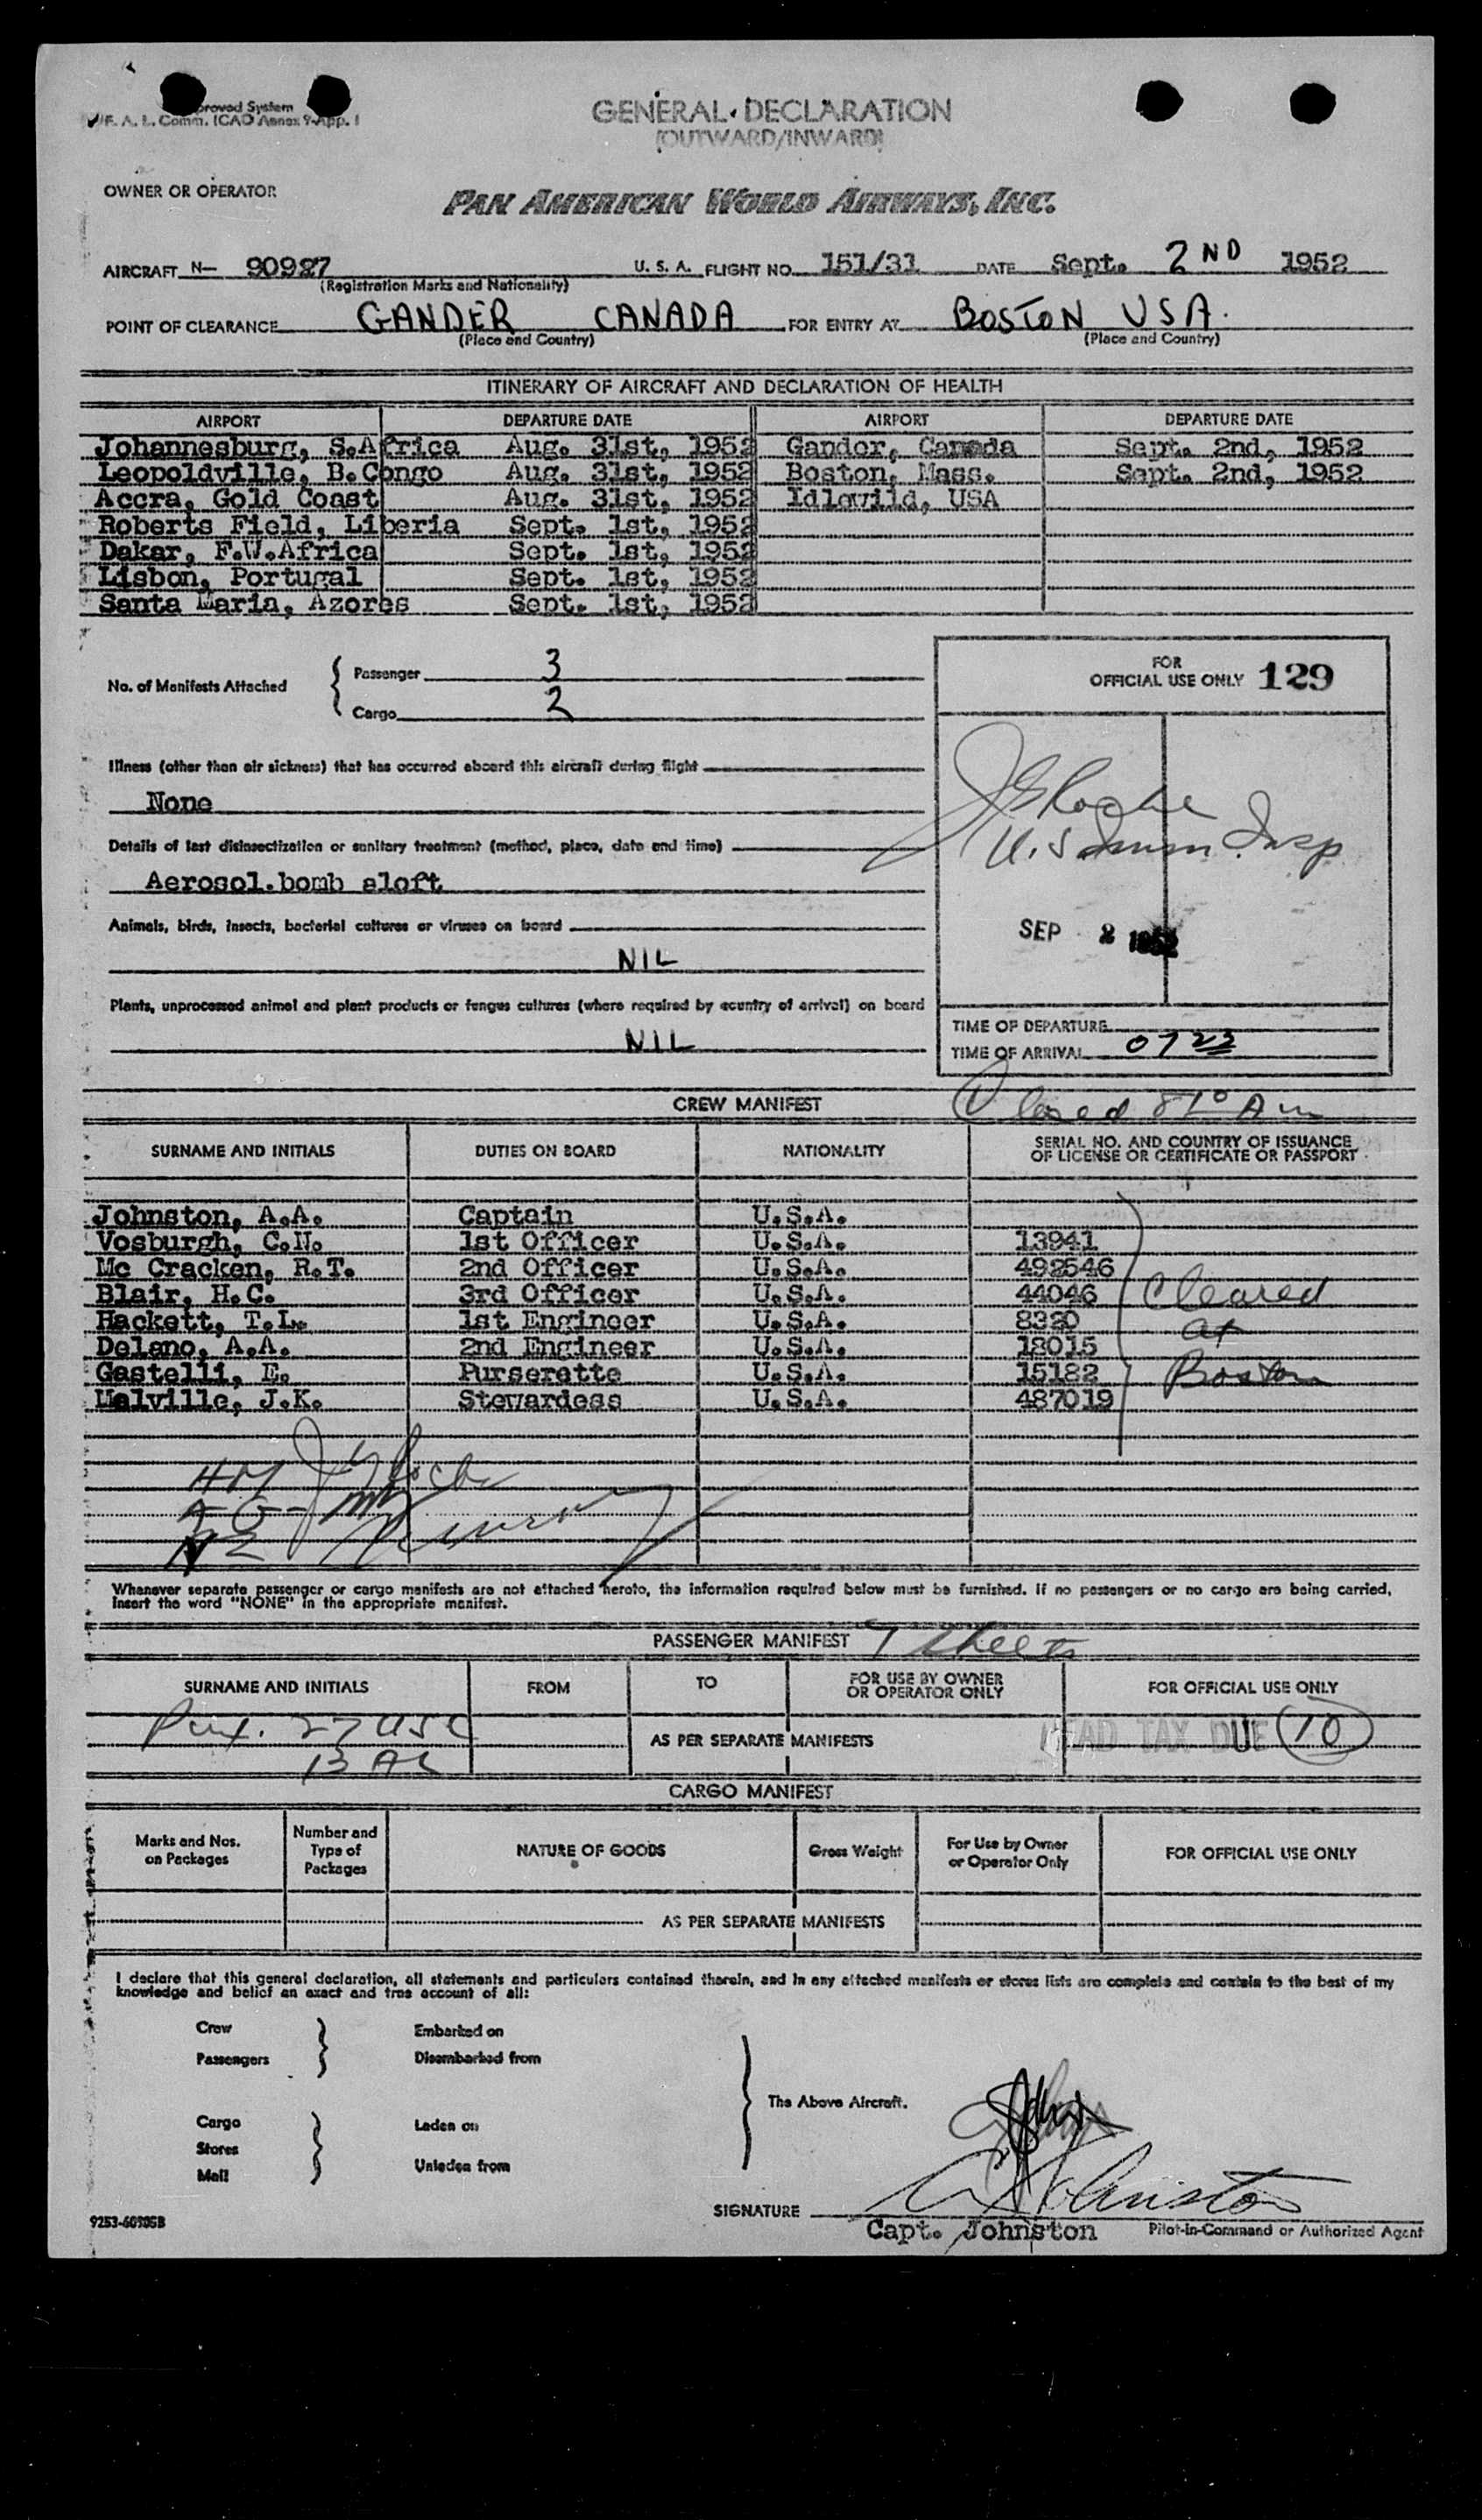 proved System
F. A. L. Comm. ICAO Annex 9-App. 1
GENERAL DECLARATION
(OUTWARD/INWARD)
OWNER OR OPERATOR
PAN AMERICAN WORLD AIRWAYS, INC.
AIRCRAFT N- 90927 U. S. A. FLIGHT NO. 151/31 DATE Sept. 2ND 1952
(Registration Marks and Nationality)
POINT OF CLEARANCE GANDER CANADA FOR ENTRY AT BOSTON USA.
(Place and Country) (Place and Country)
ITINERARY OF AIRCRAFT AND DECLARATION OF HEALTH
AIRPORT DEPARTURE DATE AIRPORT DEPARTURE DATE
Johannesburg, S.Africa Aug. 31st, 1952 Gander, Canada Sept. 2nd, 1952
Leopoldville, B.Congo Aug. 31st, 1952 Boston, Mass. Sept. 2nd, 1952
Accra, Gold Coast Aug. 31st, 1952 Idlewild, USA
Roberts Field, Liberia Sept. 1st, 1952
Dakar, F.W.Africa Sept. 1st, 1952
Lisbon, Portugal Sept. 1st, 1952
Santa Maria, Azores Sept. 1st, 1952
No. of Manifests Attached
Passenger 3
Cargo 2
FOR
OFFICIAL USE ONLY 129
Illness (other than air sickness) that has occurred aboard this aircraft during flight
None
Details of last disinsectization or sanitary treatment (method, place, date and time)
Aerosol.bomb aloft
Animals, birds, insects, bacterial cultures or viruses on board
NIL
Plants, unprocessed animal and plant products or fungus cultures (where required by country of arrival) on board
NIL
U.S Immn. Insp
SEP 2 1952
TIME OF DEPARTURE
TIME OF ARRIVAL 0723
Cleared 8 10 Am
CREW MANIFEST
SURNAME AND INITIALS DUTIES ON BOARD NATIONALITY SERIAL NO. AND COUNTRY OF ISSUANCE
OF LICENSE OR CERTIFICATE OR PASSPORT
Johnston, A.A. Captain U.S.A.
Vosburgh, C.N. 1st Officer U.S.A. 13941
Mc Cracken, R.T. 2nd Officer U.S.A. 492546
Blair, H.C. 3rd Officer U.S.A. 44046
Hackett, T.L. 1st Engineer U.S.A. 8320
Delano, A.A. 2nd Engineer U.S.A. 18015
Gastelli, E. Purserette U.S.A. 15182
Melville, J.K. Stewardess U.S.A. 487019
Cleared
at
Boston
Whenever separate passenger or cargo manifests are not attached hereto, the information required below must be furnished. If no passengers or no cargo are being carried,
insert the word "NONE" in the appropriate manifest.
PASSENGER MANIFEST 7 sheets
SURNAME AND INITIALS FROM TO FOR USE BY OWNER
OR OPERATOR ONLY FOR OFFICIAL USE ONLY
Pax. 27 USC
AS PER SEPARATE MANIFESTS HEAD TAX DUE 10
13 AL
CARGO MANIFEST
Marks and Nos.
on Packages
Number and
Type of
Packages
NATURE OF GOODS
Gross Weight
For Use by Owner
or Operator Only
FOR OFFICIAL USE ONLY
AS PER SEPARATE MANIFESTS
I declare that this general declaration, all statements and particulars contained therein, and in any attached manifests or stores lists are complete and contain to the best of my
knowledge and belief an exact and true account of all:
Crew Embarked on
Passengers Disembarked from
The Above Aircraft.
Cargo Laden on
Stores
Mail Unladen from
SIGNATURE A A Johnston
Capt. Johnston Pilot-in-Command or Authorized Agent
9253-60305B